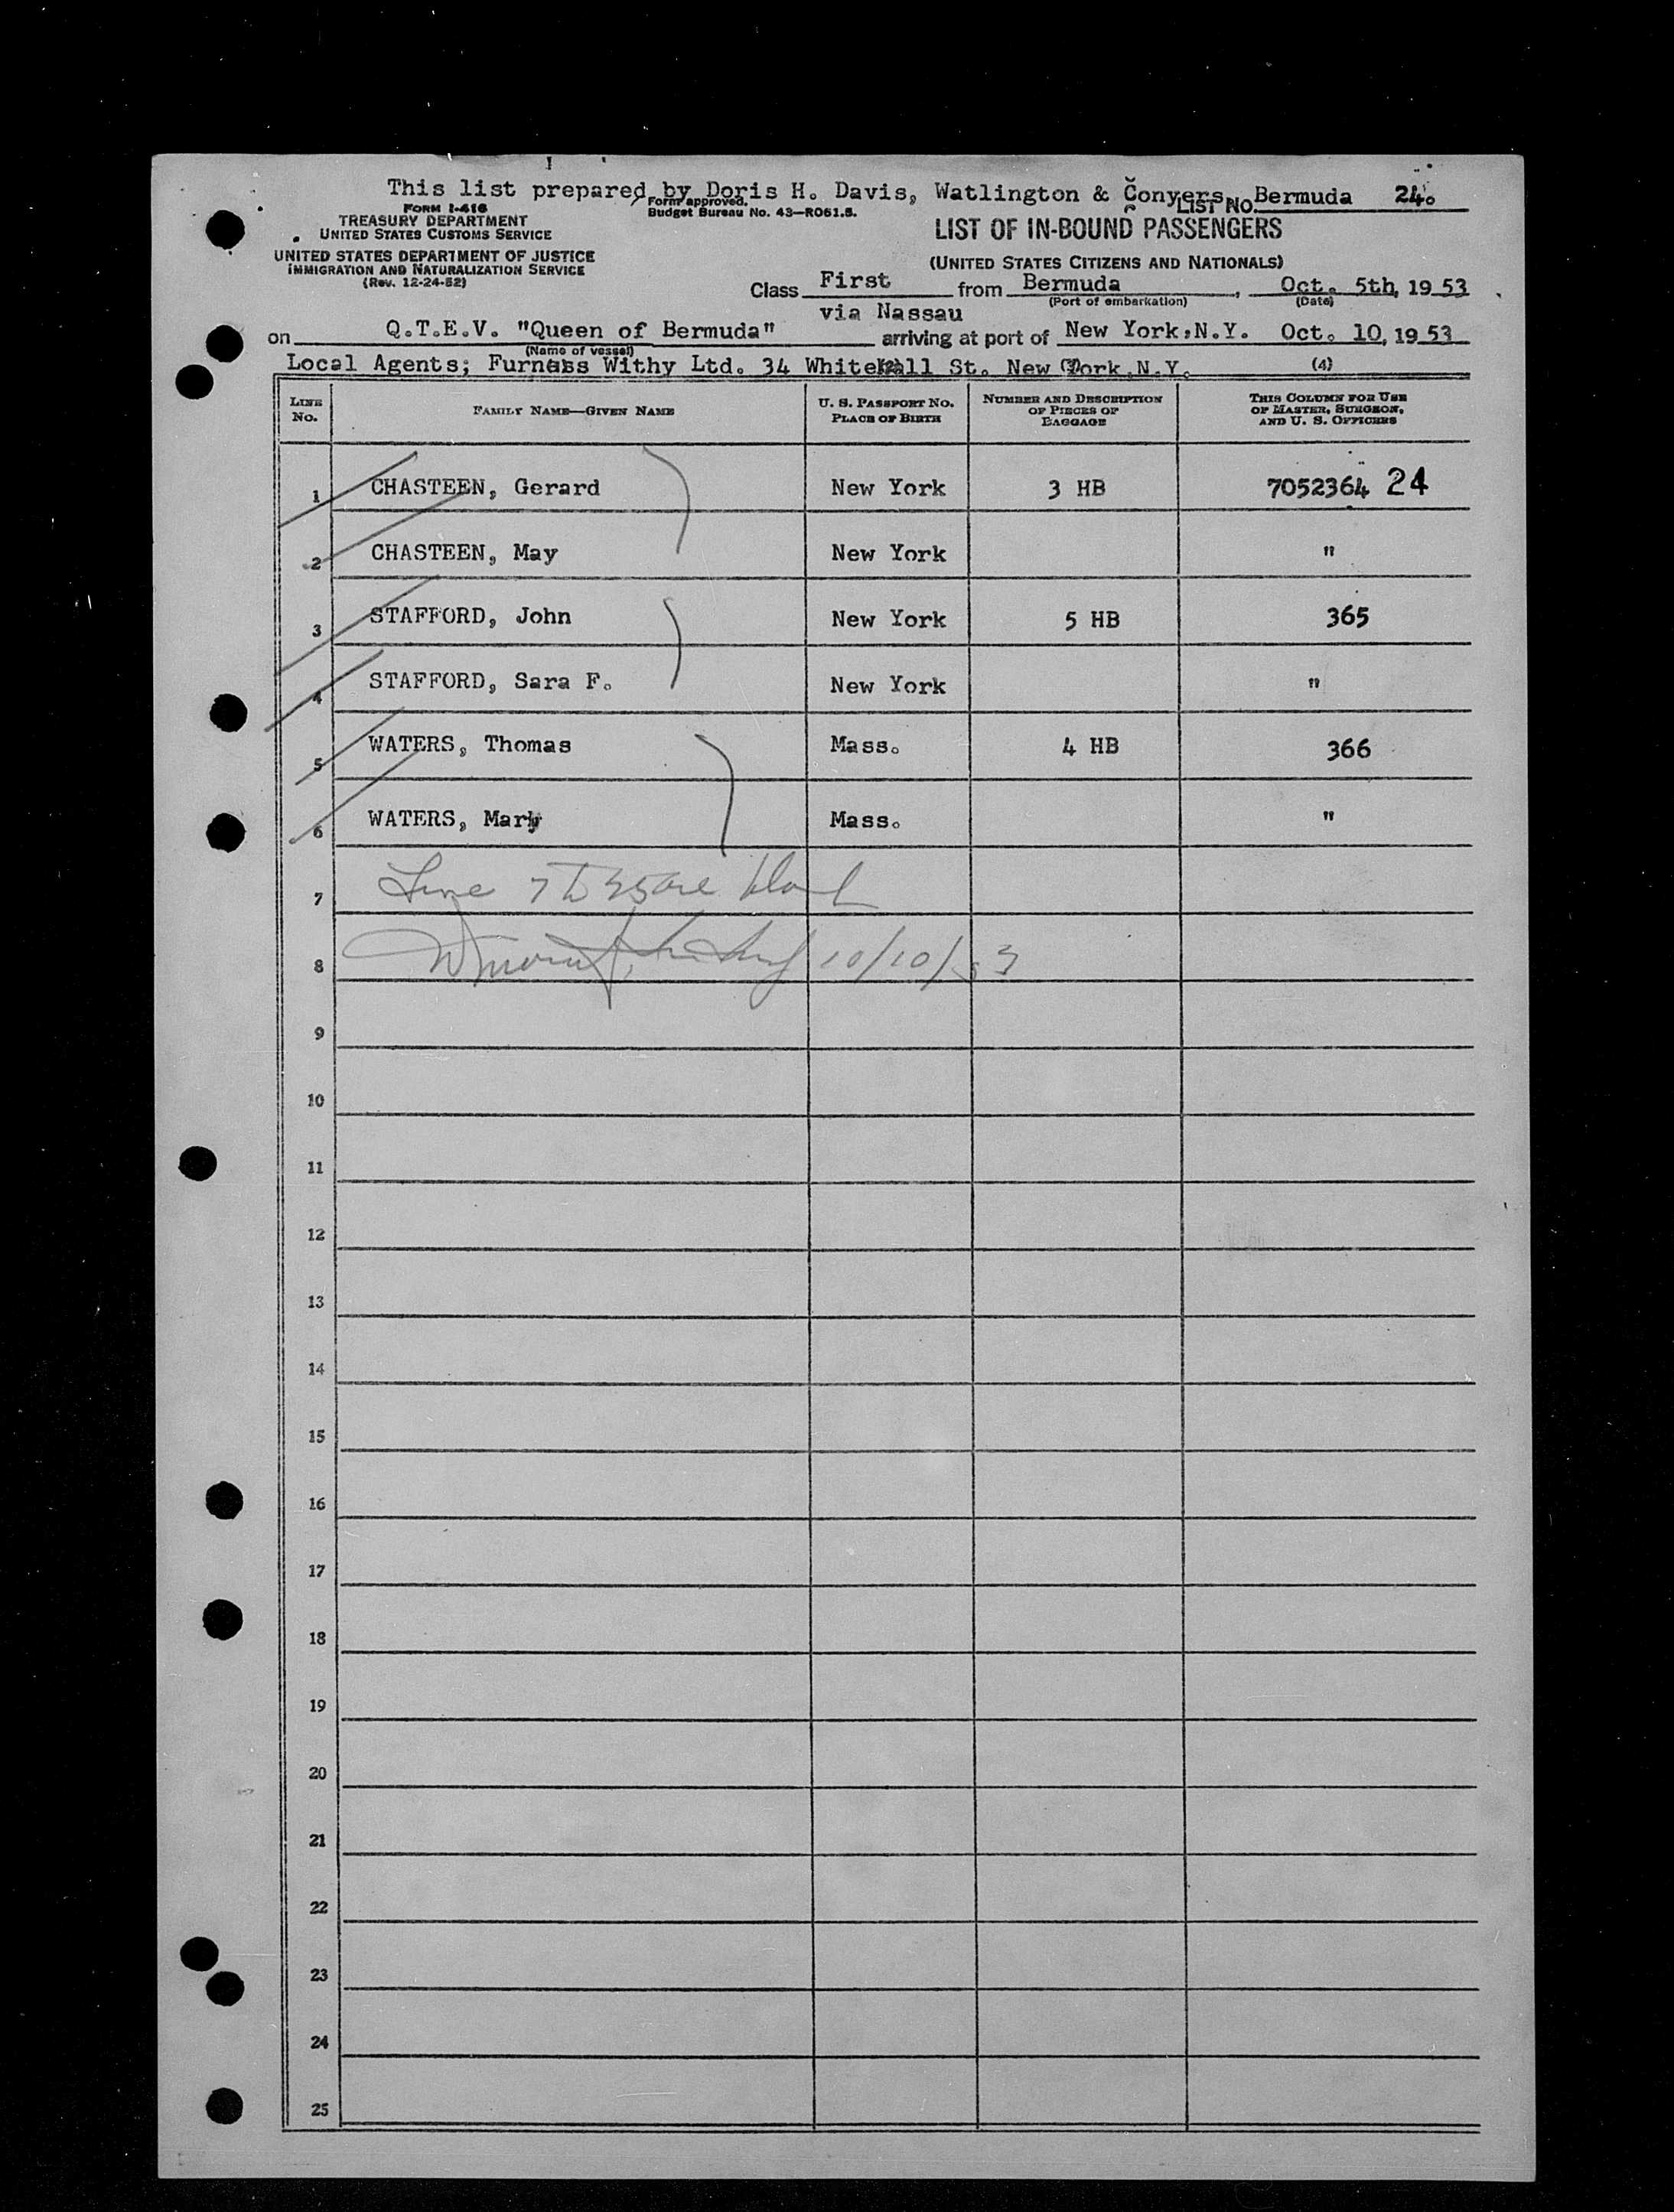 This list prepared by Doris H. Davis, Watlington & Conyers, Bermuda 24.
LIST NO.
FORM I-416
TREASURY DEPARTMENT
UNITED STATES CUSTOMS SERVICE
UNITED STATES DEPARTMENT OF JUSTICE
IMMIGRATION AND NATURALIZATION SERVICE
(Rev. 12-24-52)
Form approved.
Budget Bureau No. 43—R061.5.
LIST OF IN-BOUND PASSENGERS
(UNITED STATES CITIZENS AND NATIONALS)
Class First from Bermuda, Oct. 5th, 19 53
(Port of embarkation) (Date)
via Nassau
on Q.T.E.V. "Queen of Bermuda" arriving at port of New York, N.Y. Oct. 10, 19 53
(Name of vessel)
Local Agents; Furness Withy Ltd. 34 Whitehall St. New York N.Y. (4)
LINE NO. FAMILY NAME—GIVEN NAME U. S. PASSPORT NO. PLACE OF BIRTH NUMBER AND DESCRIPTION OF PIECES OF BAGGAGE THIS COLUMN FOR USE OF MASTER, SURGEON, AND U. S. OFFICERS
1 CHASTEEN, Gerard New York 3 HB 7052364 24
2 CHASTEEN, May New York "
3 STAFFORD, John New York 5 HB 365
4 STAFFORD, Sara F. New York "
5 WATERS, Thomas Mass. 4 HB 366
6 WATERS, Mary Mass. "
7 Line 7 to 25 are blank
8 10/10/53
9
10
11
12
13
14
15
16
17
18
19
20
21
22
23
24
25